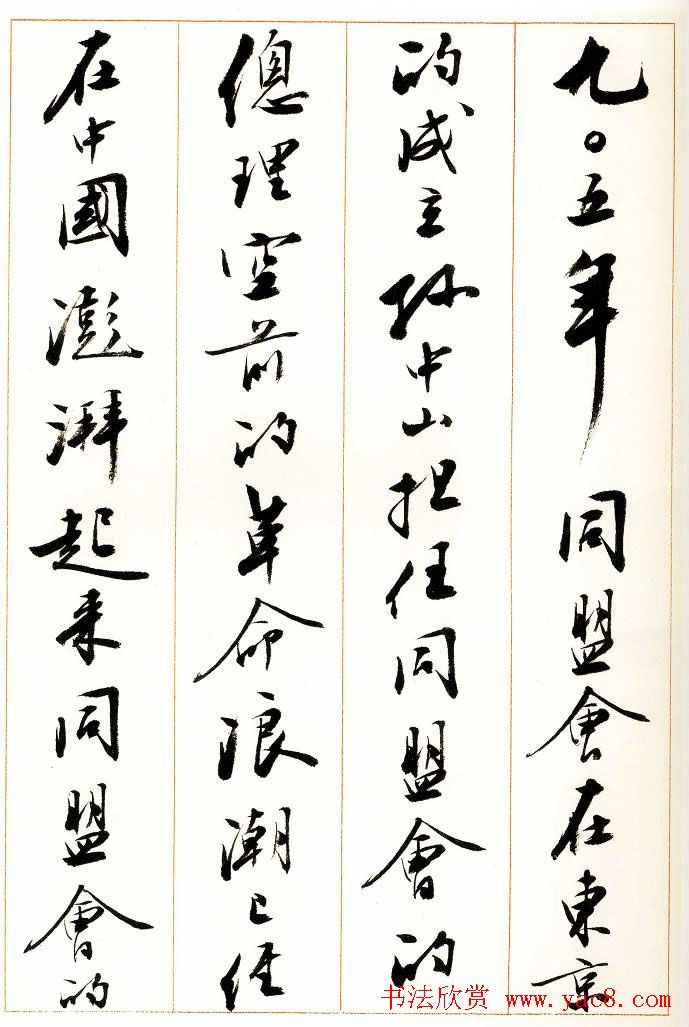 九〇五年同盟會在東京
的成立孙中山担任同盟會的
總理空前的革命浪潮已经
在中國澎湃起来同盟會的
书法欣赏 www.yac8.com